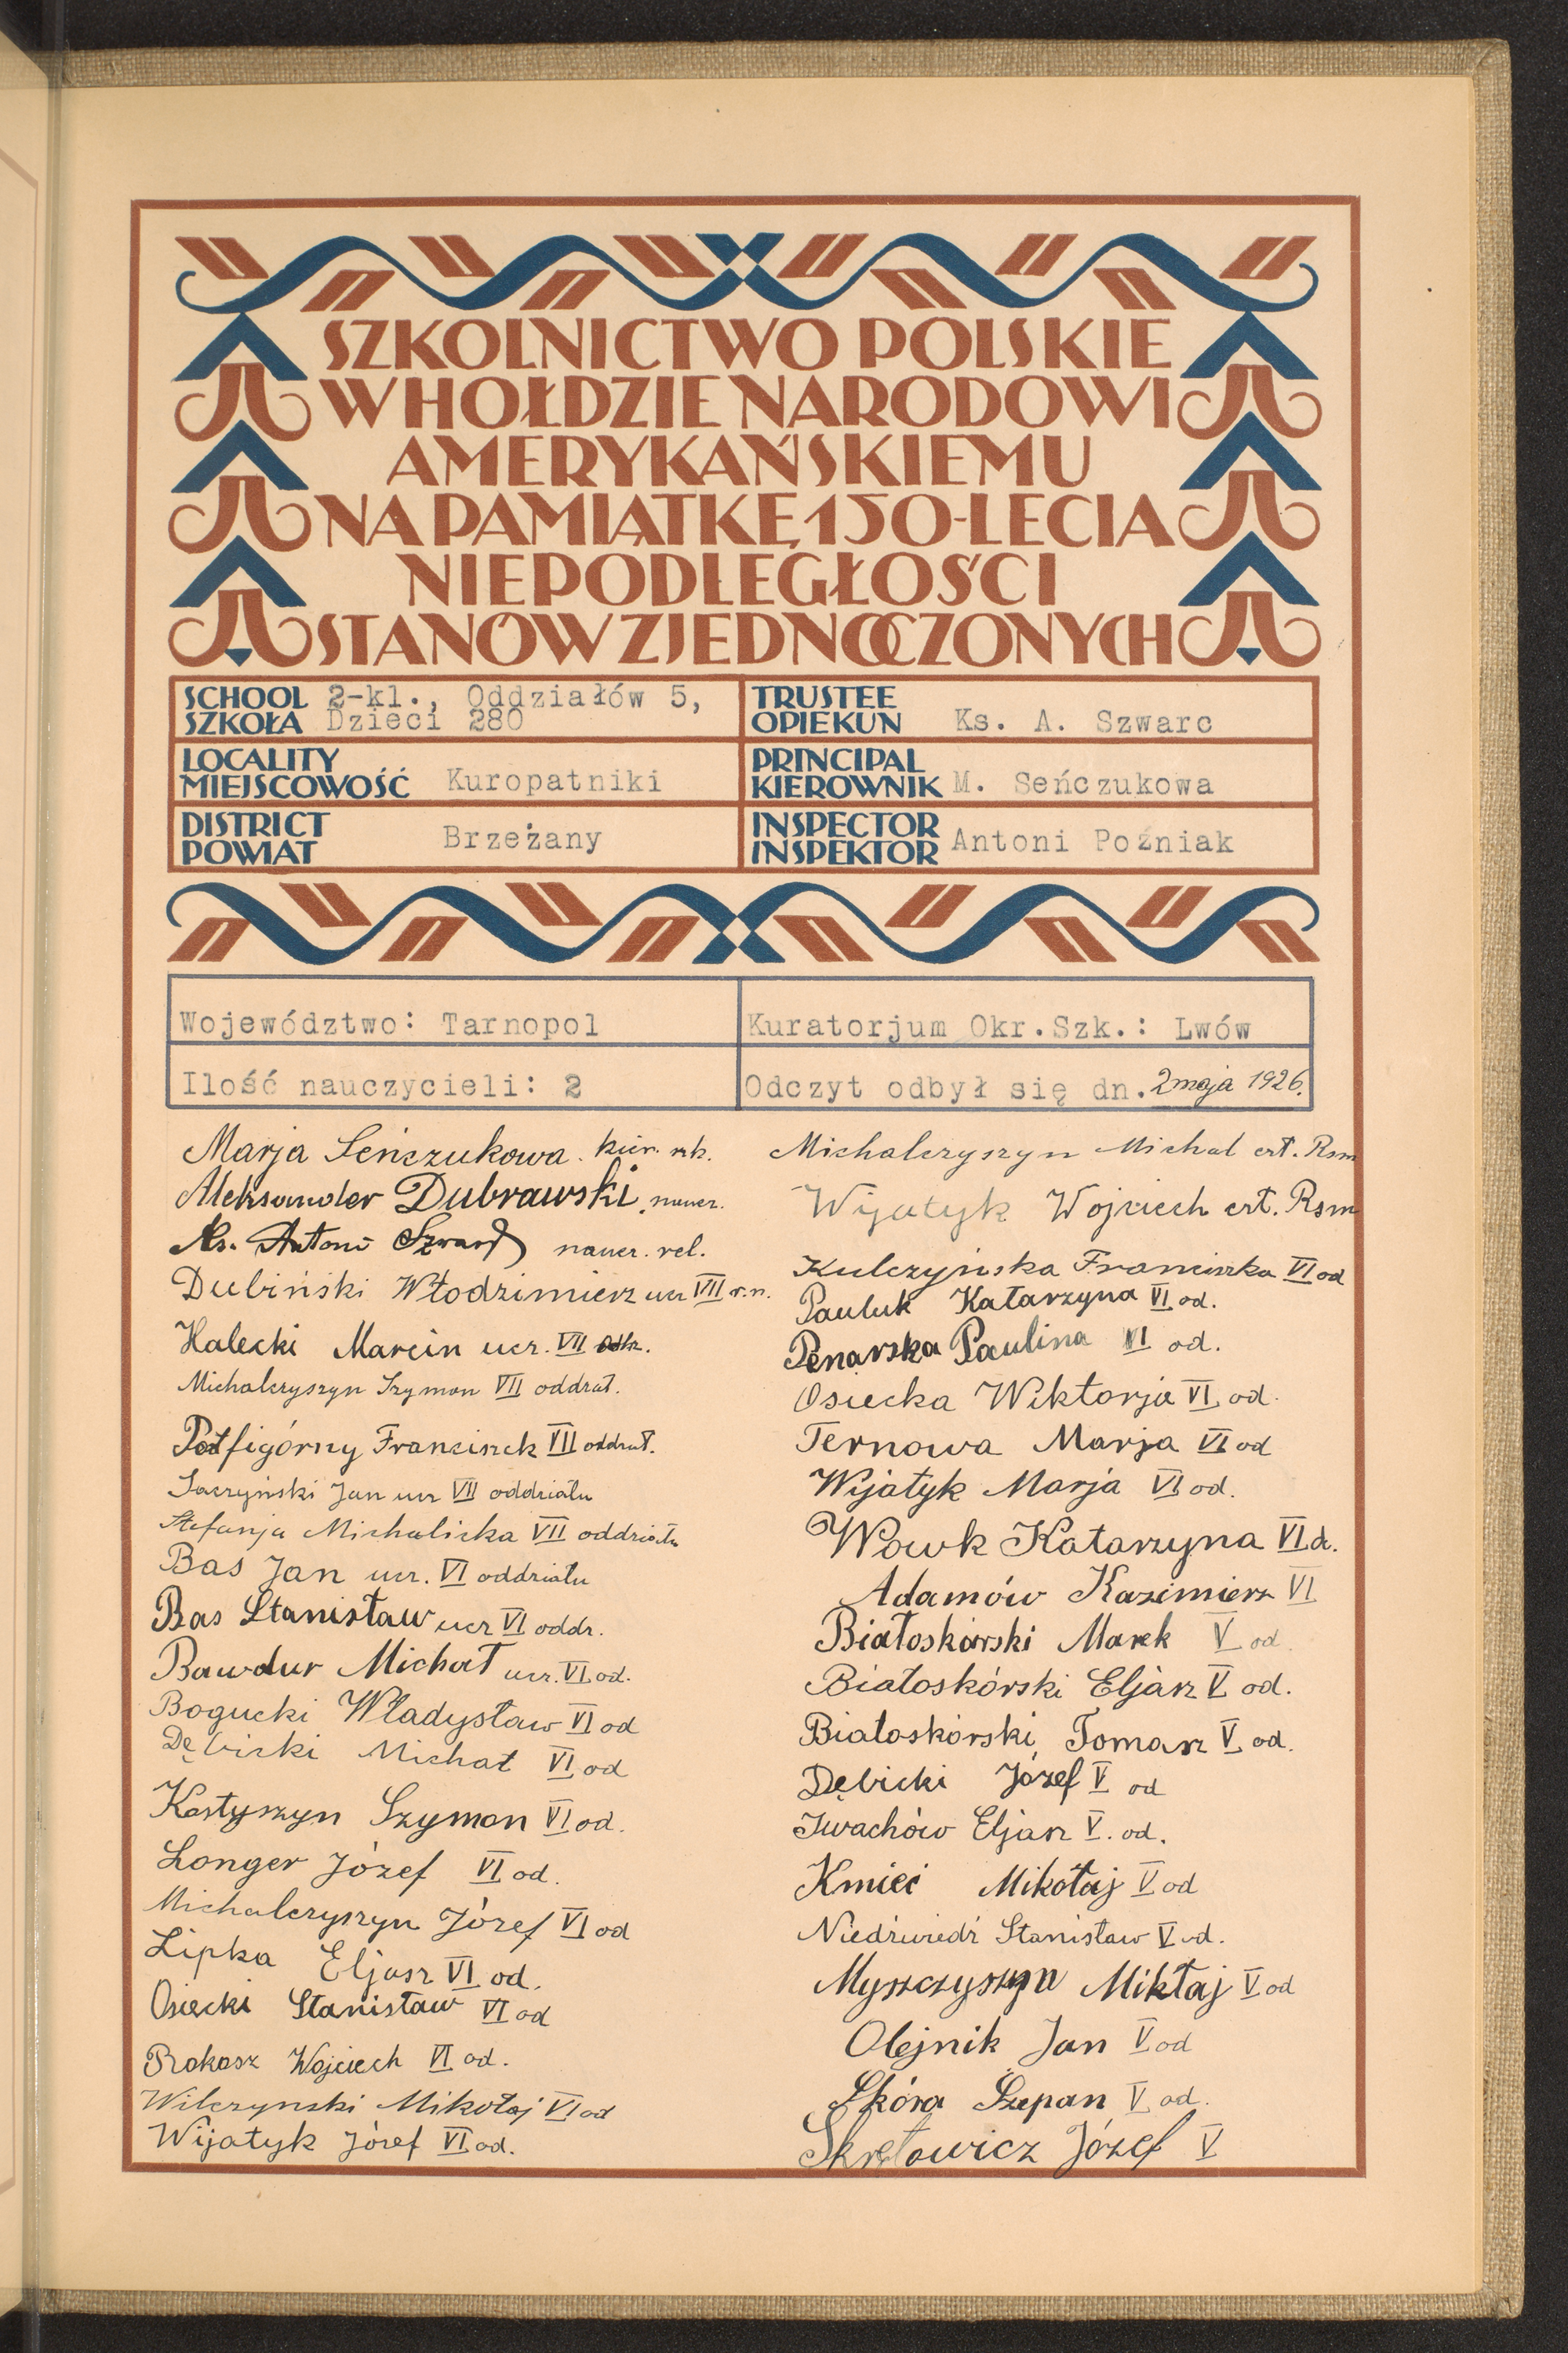 SZKOLNICTWO POLSKIE
W HOŁDZIE NARODOWI
AMERYKAŃSKIEMU
NA PAMIĄTKĘ 150-LECIA
NIEPODLEGŁOŚCI
STANÓW ZJEDNOCZONYCH
SCHOOL 2-kl., Oddziałów 5,
SZKOŁA Dzieci 280
TRUSTEE
OPIEKUN Ks. A. Szwarc
LOCALITY
MIEJSCOWOŚĆ Kuropatniki
PRINCIPAL
KIEROWNIK M. Seńczukowa
DISTRICT
POWIAT Brzeżany
INSPECTOR
INSPEKTOR Antoni Poźniak
Województwo: Tarnopol
Kuratorjum Okr.Szk.: Lwów
Ilość nauczycieli: 2
Odczyt odbył się dn. 2 maja 1926.
Marja Seńczukowa. kier.
Aleksander Dubrawski, naucz.
Ks. Antoni Szwarc naucz. rel.
Dubiński Włodzimierz ucz VII r.n.
Halecki Marcin ucz. VII
Michalczyszyn Szymon VII oddział.
Półfigórny Franciszek VII oddział.
Saczyński Jan ucz VII oddziału
Stefanja Michalicka VII oddziału
Bas Jan ucz. VI oddziału
Bas Stanisław ucz VI oddz.
Bawdur Michał ucz. VI od.
Bogucki Władysław VI od
Dębicki Michał VI od
Kostyszyn Szymon VI od.
Longer Józef VI od.
Michalczyszyn Józef VI od
Lipka Eljasz VI od.
Osiecki Stanisław VI od
Prokosz Wojciech VI od.
Wilczynski Mikołaj VI od
Wijatyk Józef VI od.
Michalczyszyn Michał czł. Rsm
Wijatyk Wojciech czł. Rsm
Kulczyńska Franciszka VI od
Pauluk Katarzyna VI od.
Penarska Paulina VI od.
Osiecka Wiktorja VI od.
Ternowa Marja VI od
Wijatyk Marja VI od.
Wowk Katarzyna VI d.
Adamów Kazimierz VI
Białoskórski Marek V od.
Białoskórski Eljasz V od.
Białoskórski Tomasz V od.
Dębicki Józef V od
Iwachów Eljasz V. od.
Kmieć Mikołaj V od
Niedźwiedź Stanisław V od.
Myszczyszyn Miktaj V od
Olejnik Jan V od
Skóra Szepan V od.
Skrętowicz Józef V